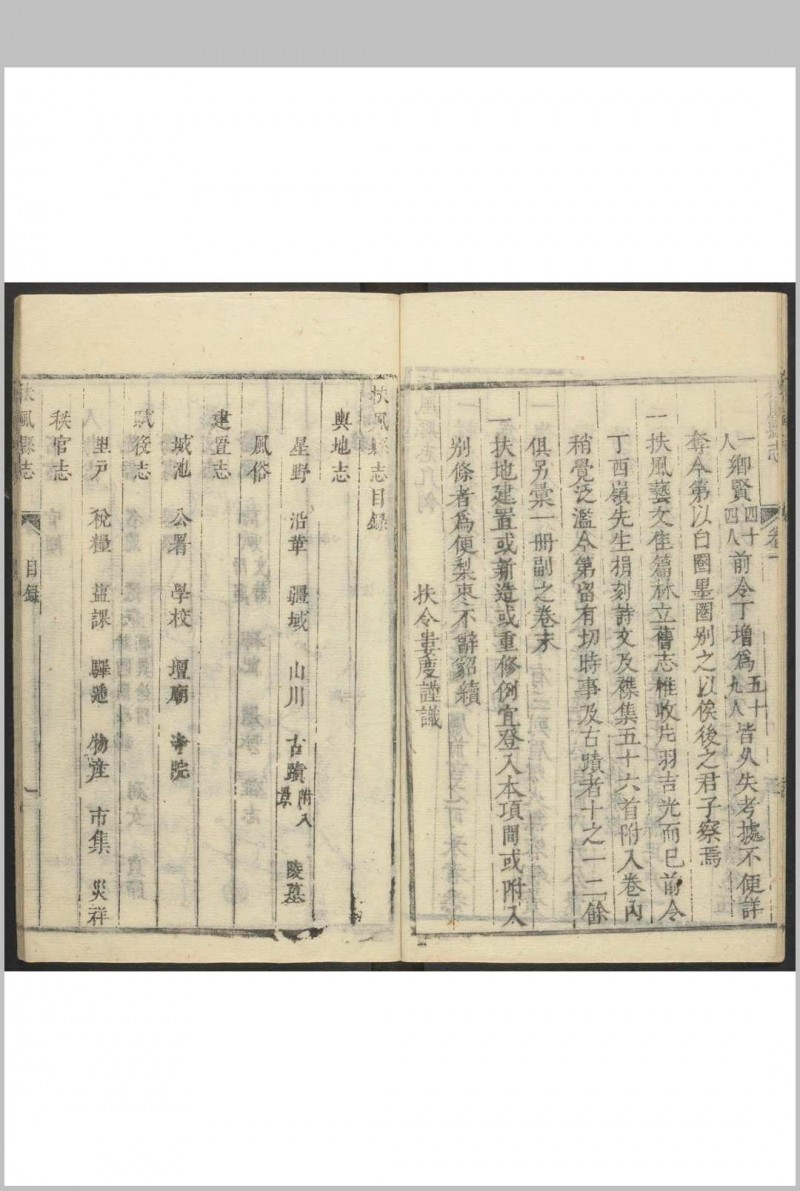 卷一
一鄉賢四十四人前令丁增爲五十九人皆久失考據不便詳
奪今第以白圈墨圈別之以俟後之君子察焉
一扶風藝文隹篇林立舊志惟收片羽吉光而已前令
丁西嶺先生捐刻詩文及襍集五十六首附入卷內
稍覺泛濫今第留有切時事及古蹟者十之一二餘
俱另彙一冊副之卷末
一扶地建置或新造或重修例宜登入本項間或附入
別條者爲便梨棗不辭貂續
扶令婁慶謹識
扶風縣志目錄
輿地志
星野 沿革 疆域 山川 古蹟附入景 陵墓
風俗
建置志
城池 公署 學校 壇廟 寺院
賦役志
里戸 稅糧 鹽課 驛遞 物產 市集 災祥
秩官志
扶風縣志 目錄 一